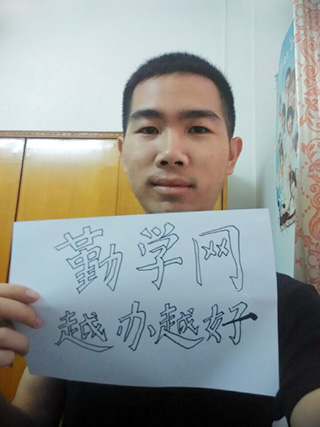 勤学网
越办越好